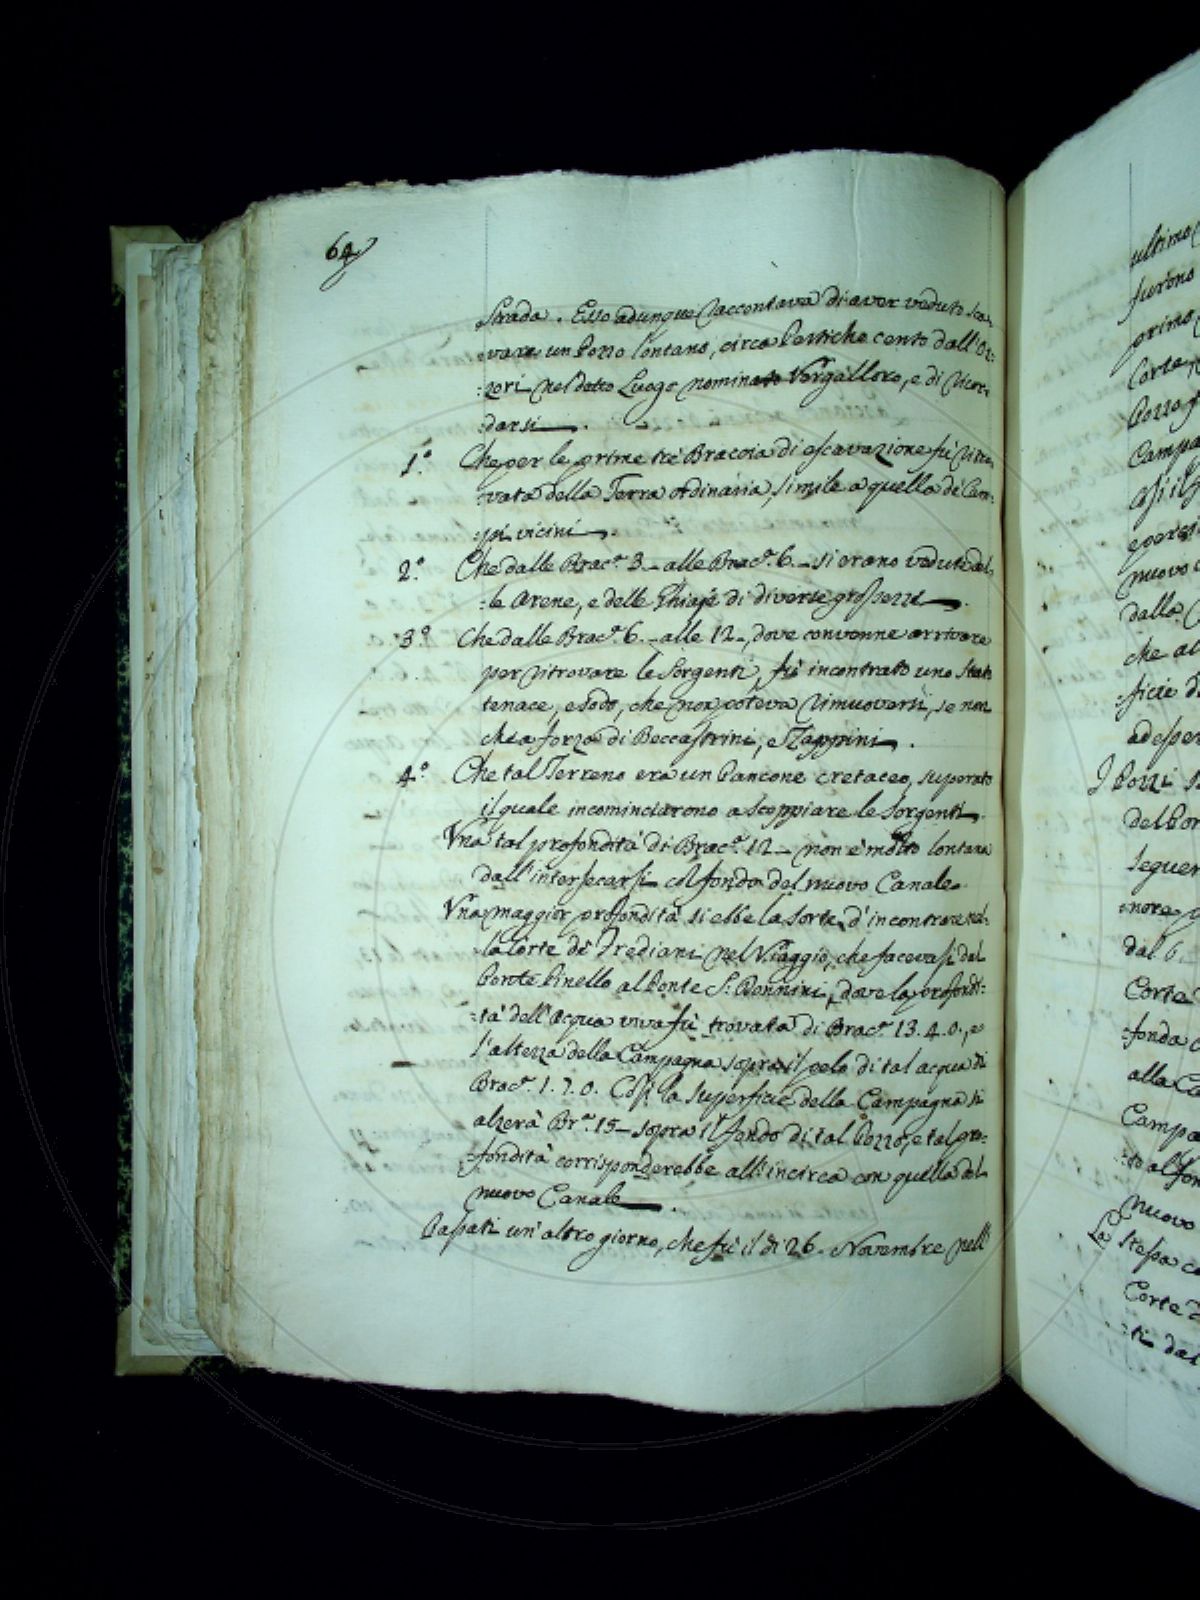 64
Strada. Esso adunque raccontava di aver veduto sca-
-vare un Pozzo lontano, circa Pertiche cento dall'Oz-
-zeri nel detto Luogo nominato Vorgalloro, e di ricor-
-darsi.
1.º Che per le prime trè Braccia di escavazione fù ritro-
-vata della Terra ordinaria, simile a quella de Cam-
-pi vicini.
2.º Che dalle Brac.ª 3 alle Brac.ª 6 si erano vedute del-
-le Arene, e delle Ghiaje di diverse grossezze.
3.º Che dalle Brac.ª 6 alle 12, dove convenne arrivare
per ritrovare le Sorgenti, fù incontrato uno Strato
tenace, e sodo, che non poteva rimuoversi, se non
che a forza di Beccastrini, e Zappini.
4.º Che tal Terreno era un Pancone cretaceo, superato
il quale incominciarono a scoppiare le Sorgenti.
Una tal profondità di Brac.ª 12 non è molto lontana
dall'intersecarsi col fondo del nuovo Canale.
Una maggior profondità si ebbe la sorte d'incontrare nel-
-la Corte de Frediani nel Viaggio, che facevasi dal
Ponte Pinello al Ponte S. Donnini, dove la profondi-
-tà dell'Acqua viva fù trovata di Brac.ª 13.4.0., e
l'altezza della Campagna sopra il pelo di tal acqua di
Brac.ª 1.7.0. Così la superficie della Campagna si
alzerà Br.ª 15 sopra il fondo di tal Pozzo, e tal pro-
-fondità corrisponderebbe all'incirca con quella del
nuovo Canale.
Passati un'altro giorno, che fù il dì 26. Novembre nell'
ultimo
furono
primo
Corte
Pozza
Campa
così il
e per
nuovo
dalla
che al
-ficie d
ad esper
I Pozzi s
del Pon
seguen
-nore
dal 6.
Corte
-fonda
alla Ca
Campa
-to al fon
nuovo
La stessa co
Corte
-ti dal